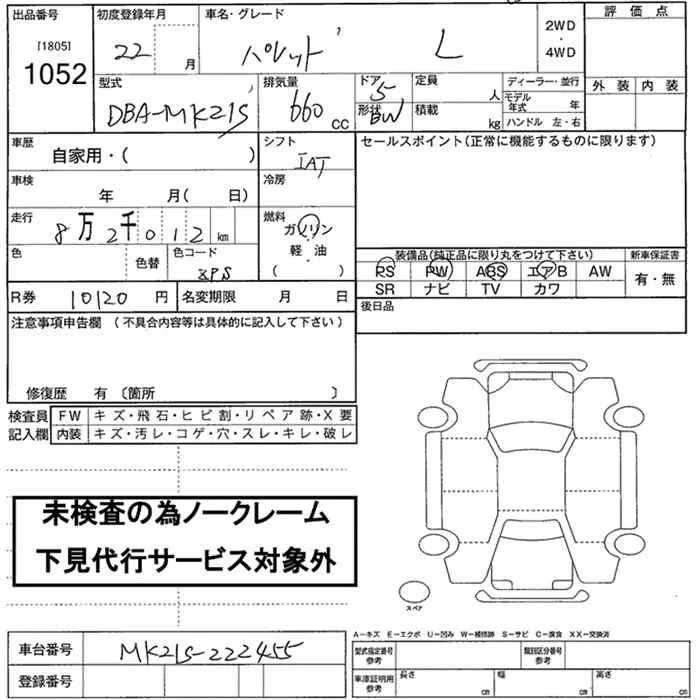 出品番号 初度登録年月 車名・グレード 2WD・4WD 評価点
[1805]
1052 22 月 パレット L
外装 内装
型式 排気量 ドア 定員 ディーラー・並行
DBA-MK21S 660 cc 5 人 モデル年式 年
形状 BW 積載 kg ハンドル 左・右
車歴 シフト セールスポイント(正常に機能するものに限ります)
自家用・( ) IAT
車検 冷房
年 月( 日)
走行 燃料
8万2千012km ガソリン
軽・油
( )
色 色替 色コード
装備品(純正品に限り丸をつけて下さい) 新車保証書
PS PW ABS エアB AW 有・無
SR ナビ TV カワ
R券 10120 円 名変期限 月 日 後日品
注意事項申告欄 (不具合内容等は具体的に記入して下さい)
修復歴 有 〔箇所 〕
検査員 FW キズ・飛石・ヒビ割・リペア跡・X要
記入欄 内装 キズ・汚レ・コゲ・穴・スレ・キレ・破レ
未検査の為ノークレーム
下見代行サービス対象外
スペア
A-キズ E-エクボ U-凹み W-補修跡 S-サビ C-腐食 XX-交換済
車台番号 MK21S-222455 型式指定番号 参考 類別区分番号 参考
登録番号 車庫証明用 参考 長さ cm 幅 cm 高さ cm